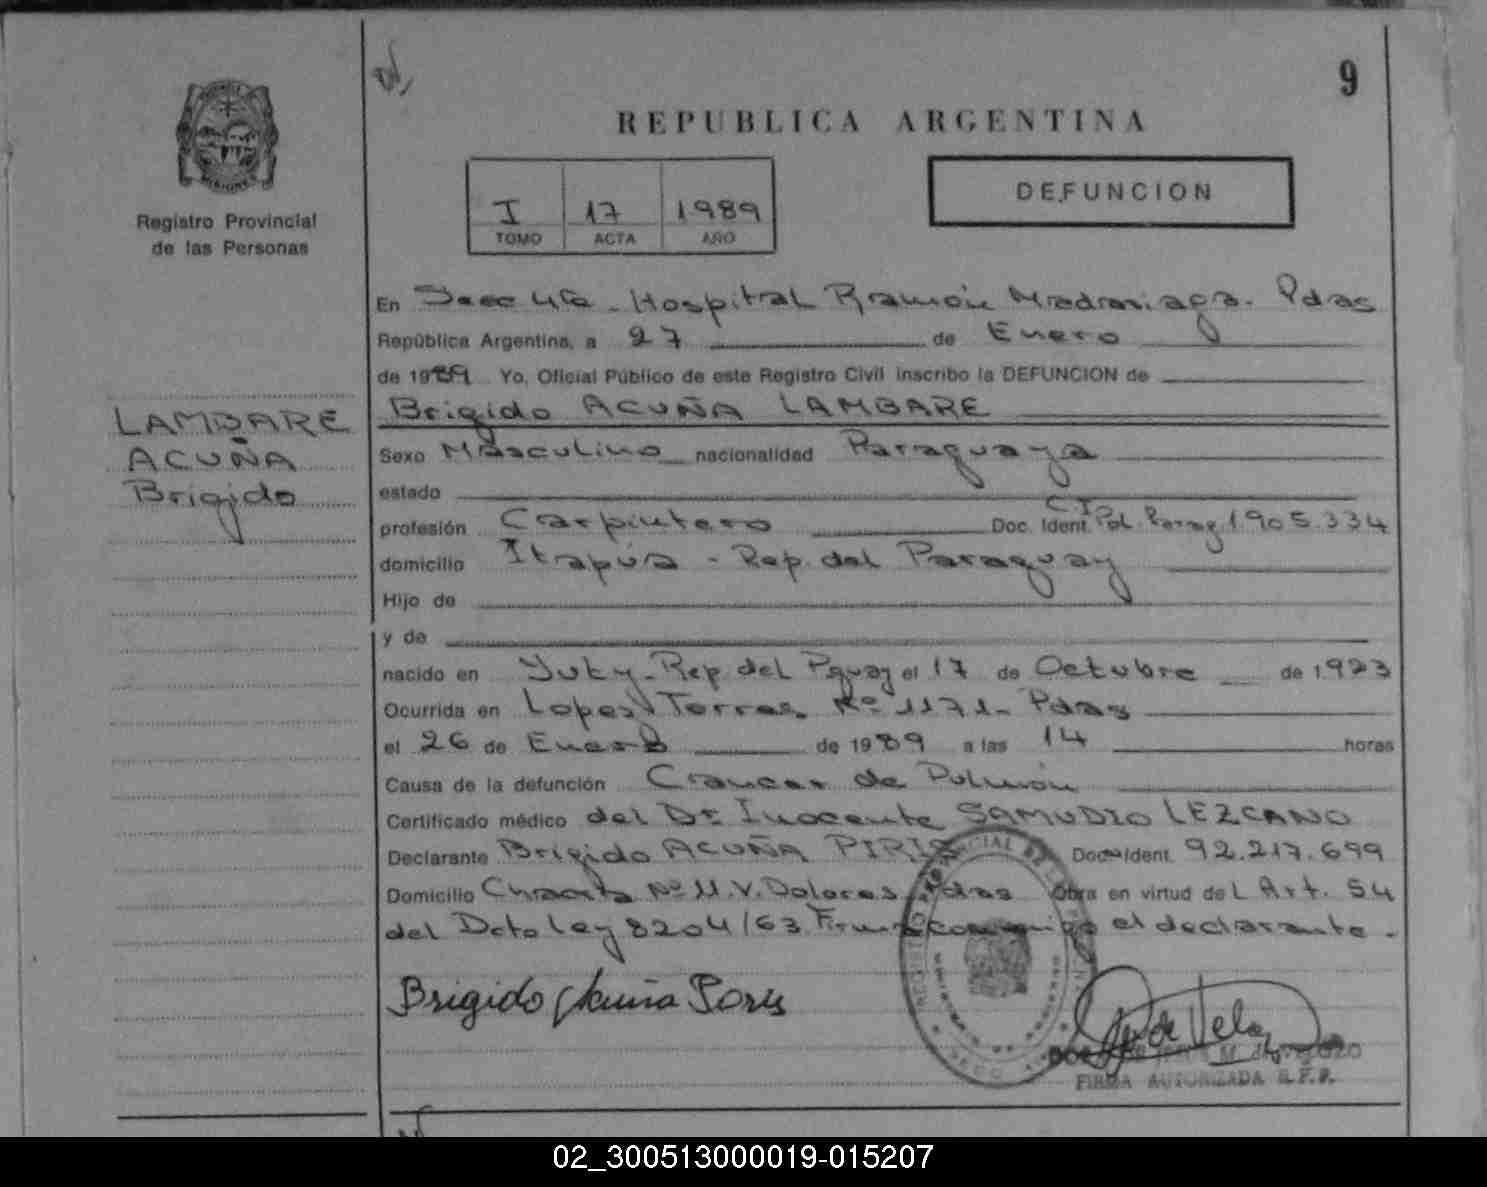 9
REPUBLICA ARGENTINA
I 17 1989
TOMO ACTA AÑO
DEFUNCION
Registro Provincial
de las Personas
LAMBARE
ACUÑA
Brigido
En Secc 4ta - Hospital Ramón Madariaga. Pdas
República Argentina, a 27 de Enero
de 1989 Yo, Oficial Público de este Registro Civil inscribo la DEFUNCION de
Brigido ACUÑA LAMBARE
Sexo Masculino nacionalidad Paraguaya
estado
profesión Carpintero Doc. Ident. C.I. Pol. Parag. 1.905.334
domicilio Itapúa - Rep. del Paraguay
Hijo de
y de
nacido en Yuty - Rep. del Pguay el 17 de Octubre de 1.923
Ocurrida en Lopez Torres Nº 1171 - Pdas
el 26 de Enero de 1989 a las 14 horas
Causa de la defunción Cancer de Pulmón
Certificado médico del Dr. Inocente SAMUDIO LEZCANO
Declarante Brigido ACUÑA PIRIS Doc. Ident. 92.217.699
Domicilio Chacra Nº 11. V. Dolores Pdas Obra en virtud del Art. 54
del Dcto Ley 8204/63. Firma conmigo el declarante.
Brigido Acuña Piris
FIRMA AUTORIZADA
02_300513000019-015207